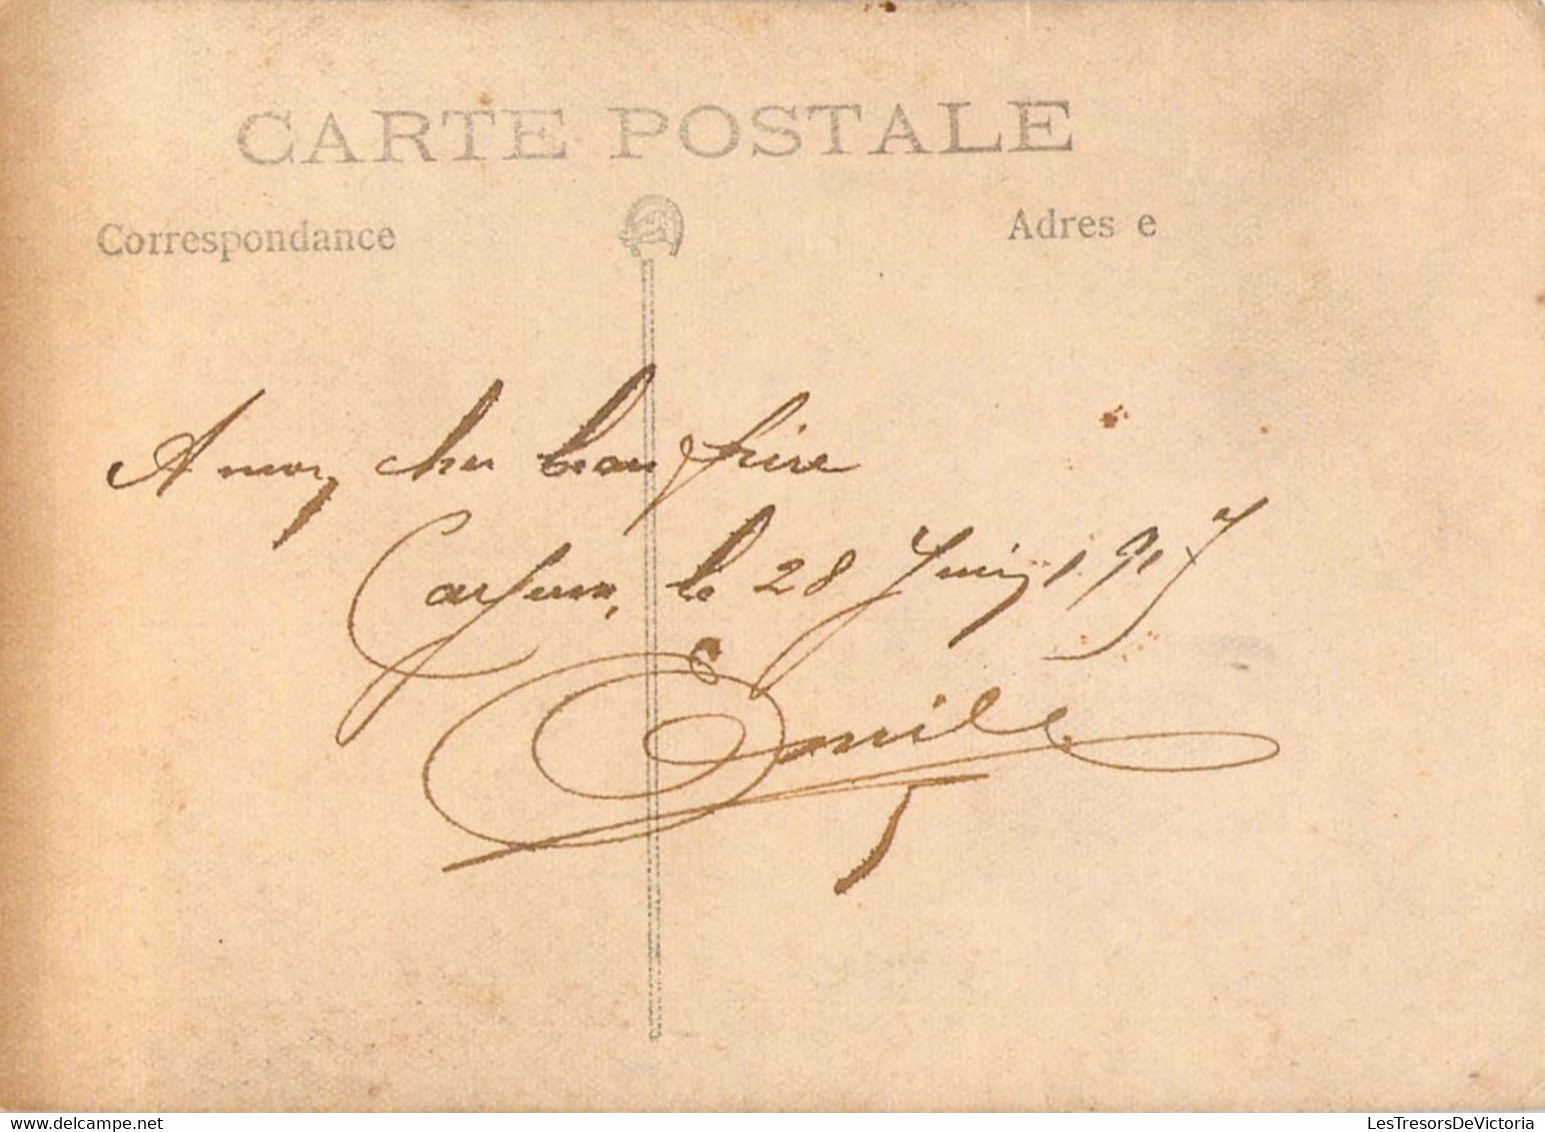 CARTE POSTALE
Correspondance
Adres e
A mon cher beau frère
le 28 Juin 1917
Emile
LesTresorsDeVictoria